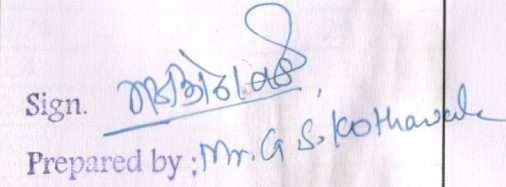 Sign.
Prepared by ; Mr. G S. Kothawade